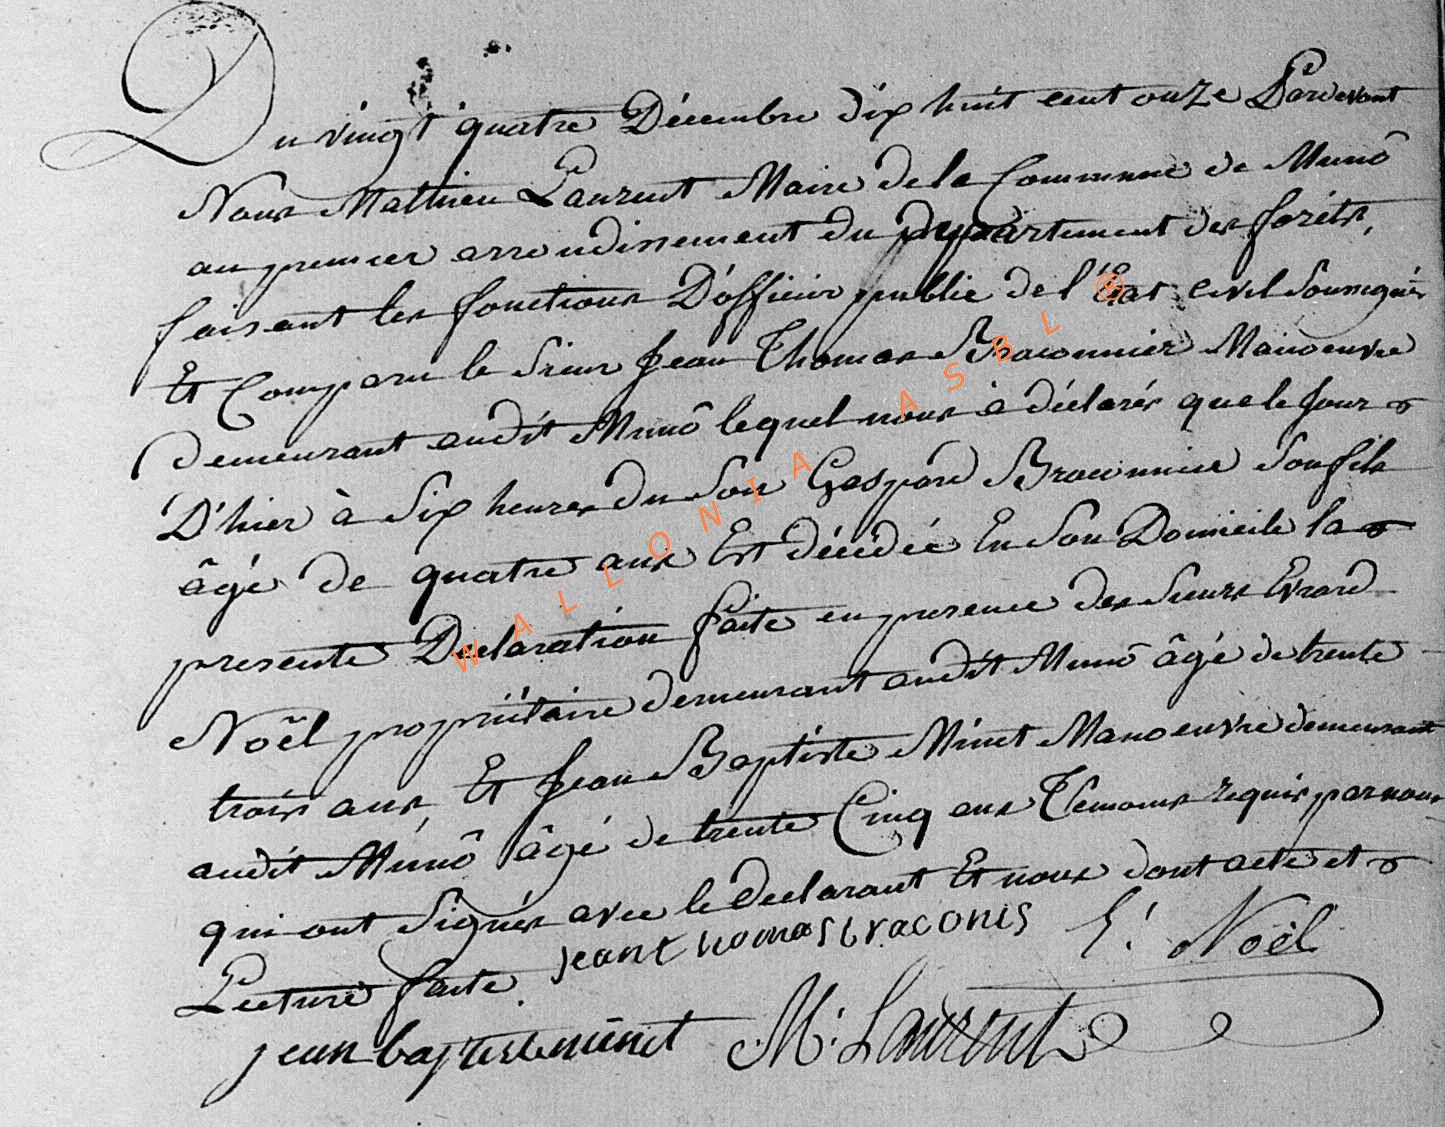 Du vingt quatre Décembre dix huit cent onze Pardevant
Nous Mathieu Laurent Maire de la Commune de Munô
au premier arrondissement du département des forêts,
faisant les fonctions D'officier public de l'Etat Civil Soussignés
Et Comparu le Sieur Jean Thomas Braconnier Manoeuvre
demeurant audit Munô lequel nous à déclarés que le Jour
D'hier à Six heures du Soir Gaspard Braconnier Son fils
âgé de quatre ans Est décédée En Son Domicile la
presente Déclaration faite en presence des Sieurs Evrard
Noël propriétaire demeurant audit Munô âgé de trente
trois ans, Et Jean Baptiste Minet Manoeuvre demeurant
audit Munô âgé de trente Cinq ans Temoins requis par nous
qui ont Signés avec le declarant Et nous dont acte et
Lecture faite. jean thomas braconis E. Noël
jean baptiste minet M: Laurent
WALLONIA ASBL ®